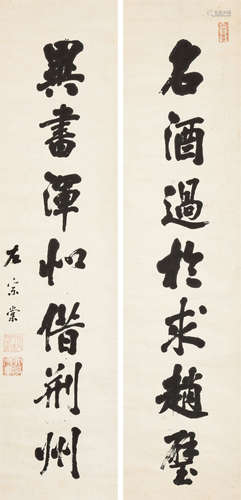 名酒過於求趙璧
異書渾似借荊州
左宗棠